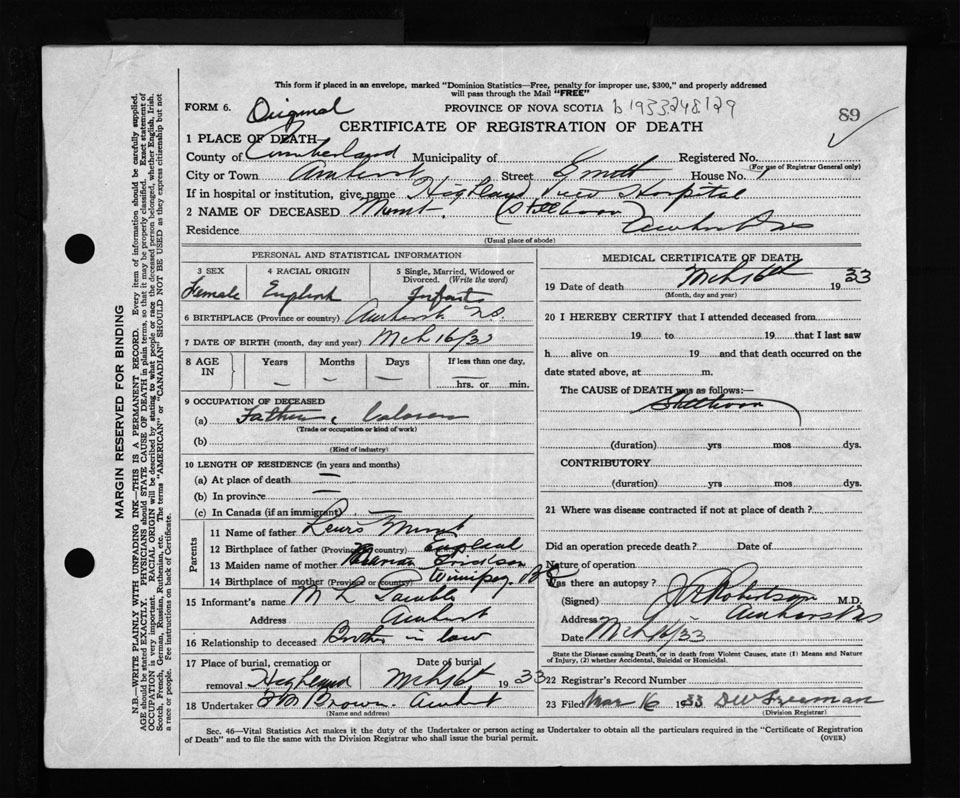 This form if placed in an envelope, marked "Dominion Statistics—Free, penalty for improper use, $300," and properly addressed
will pass through the Mail "FREE"
FORM 6. Original PROVINCE OF NOVA SCOTIA b 1933.248129
89
CERTIFICATE OF REGISTRATION OF DEATH
1 PLACE OF DEATH—
County of Cumberland Municipality of Registered No.
(For use of Registrar General only)
City or Town Amherst Street House No.
If in hospital or institution, give name Highland View Hospital
2 NAME OF DECEASED (Stillborn)
Residence Amherst N.S.
(Usual place of abode)
PERSONAL AND STATISTICAL INFORMATION
3 SEX 4 RACIAL ORIGIN 5 Single, Married, Widowed or Divorced. (Write the word)
Female English Infant
6 BIRTHPLACE (Province or country) Amherst N.S.
7 DATE OF BIRTH (month, day and year) Mch 16/33
8 AGE IN Years Months Days If less than one day,
— — — hrs. or min.
9 OCCUPATION OF DECEASED
(a) Father, Laborer
(Trade or occupation or kind of work)
(b)
(Kind of industry)
10 LENGTH OF RESIDENCE (in years and months)
(a) At place of death —
(b) In province —
(c) In Canada (if an immigrant) —
Parents
11 Name of father Lewis
12 Birthplace of father (Province or country) England
13 Maiden name of mother
14 Birthplace of mother (Province or country) Winnipeg
15 Informant's name M L
Address Amherst
16 Relationship to deceased Brother in law
17 Place of burial, cremation or removal Highland Date of burial Mch 16th 1933
18 Undertaker Brown Amherst
(Name and address)
MEDICAL CERTIFICATE OF DEATH
19 Date of death Mch 16th 1933
(Month, day and year)
20 I HEREBY CERTIFY that I attended deceased from
19 to 19 that I last saw
h alive on 19 and that death occurred on the
date stated above, at m.
The CAUSE of DEATH was as follows:—
Stillborn
(duration) yrs mos dys.
CONTRIBUTORY
(duration) yrs mos dys.
21 Where was disease contracted if not at place of death?
Did an operation precede death? Date of
Nature of operation
Was there an autopsy?
(Signed) Robertson M.D.
Address Amherst N.S.
Date Mch 16/33
State the Disease causing Death, or in death from Violent Causes, state (1) Means and Nature
of Injury, (2) whether Accidental, Suicidal or Homicidal.
22 Registrar's Record Number
23 Filed Mar 16 1933 DW Freeman
(Division Registrar)
Sec. 46—Vital Statistics Act makes it the duty of the Undertaker or person acting as Undertaker to obtain all the particulars required in the "Certificate of Registration
of Death" and to file the same with the Division Registrar who shall issue the burial permit.
(OVER)
MARGIN RESERVED FOR BINDING
N.B.—WRITE PLAINLY WITH UNFADING INK—THIS IS A PERMANENT RECORD. Every item of information should be carefully supplied.
AGE should be stated EXACTLY. PHYSICIANS should STATE CAUSE OF DEATH in plain terms, so that it may be properly classified. Exact statement of
OCCUPATION is very important. RACIAL ORIGIN will be described by stating to what people or race the deceased person belonged, whether English, Irish,
Scotch, French, German, Russian, Ruthenian, etc. The terms "AMERICAN" or "CANADIAN" SHOULD NOT BE USED as they express citizenship but not
a race or people. Fee instructions on back of Certificate.